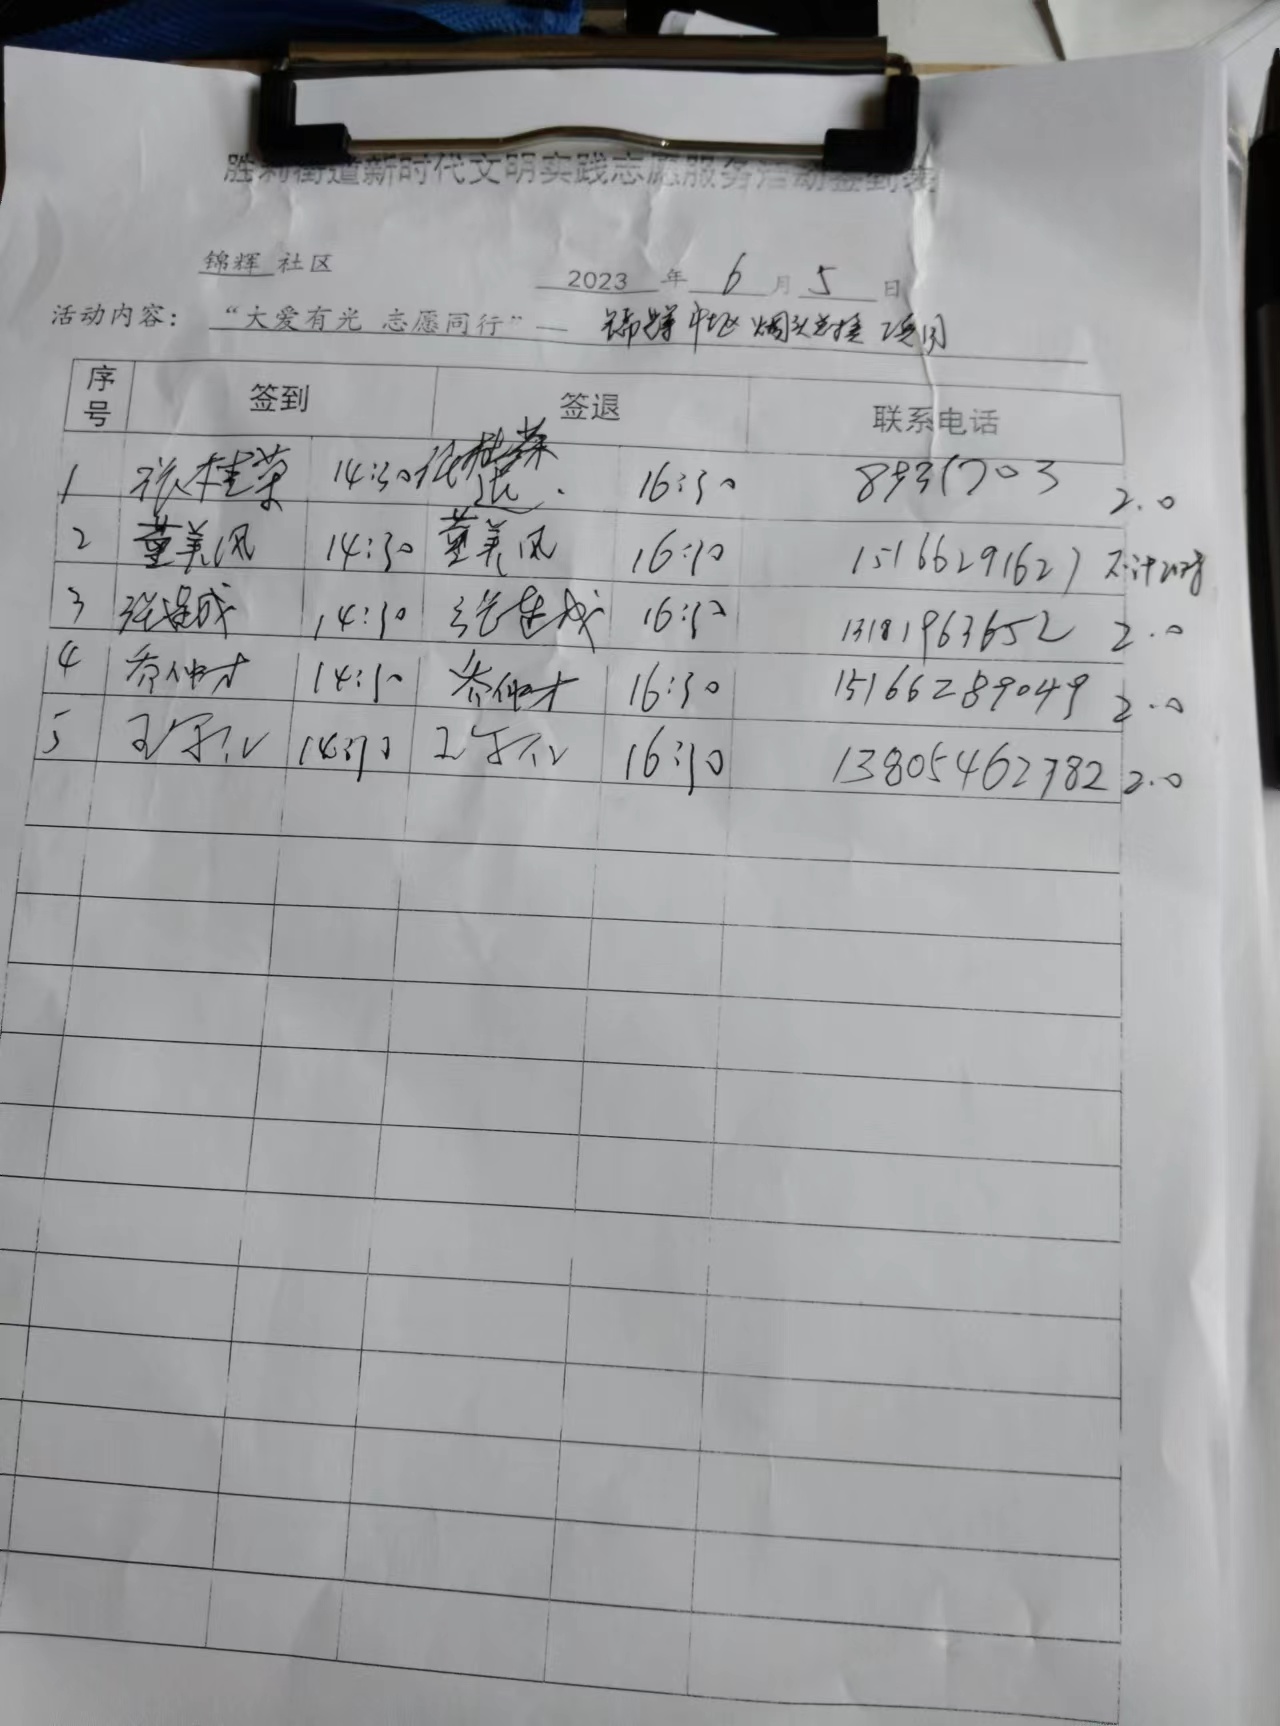 胜利街道新时代文明实践志愿服务活动签到表
锦辉 社区 2023 年 6 月 5 日
活动内容： “大爱有光 志愿同行”— 锦辉 烟头兑换 项目
序号 签到 签退 联系电话
1 张桂荣 14:30 张桂荣 退. 16:30 8935703 2.0
2 董美凤 14:30 董美凤 16:30 15166291627 不计时
3 张建成 14:30 张建成 16:30 13181963652 2.0
4 乔仲才 14:30 乔仲才 16:30 15166289049 2.0
5 14:30 16:30 13805462782 2.0